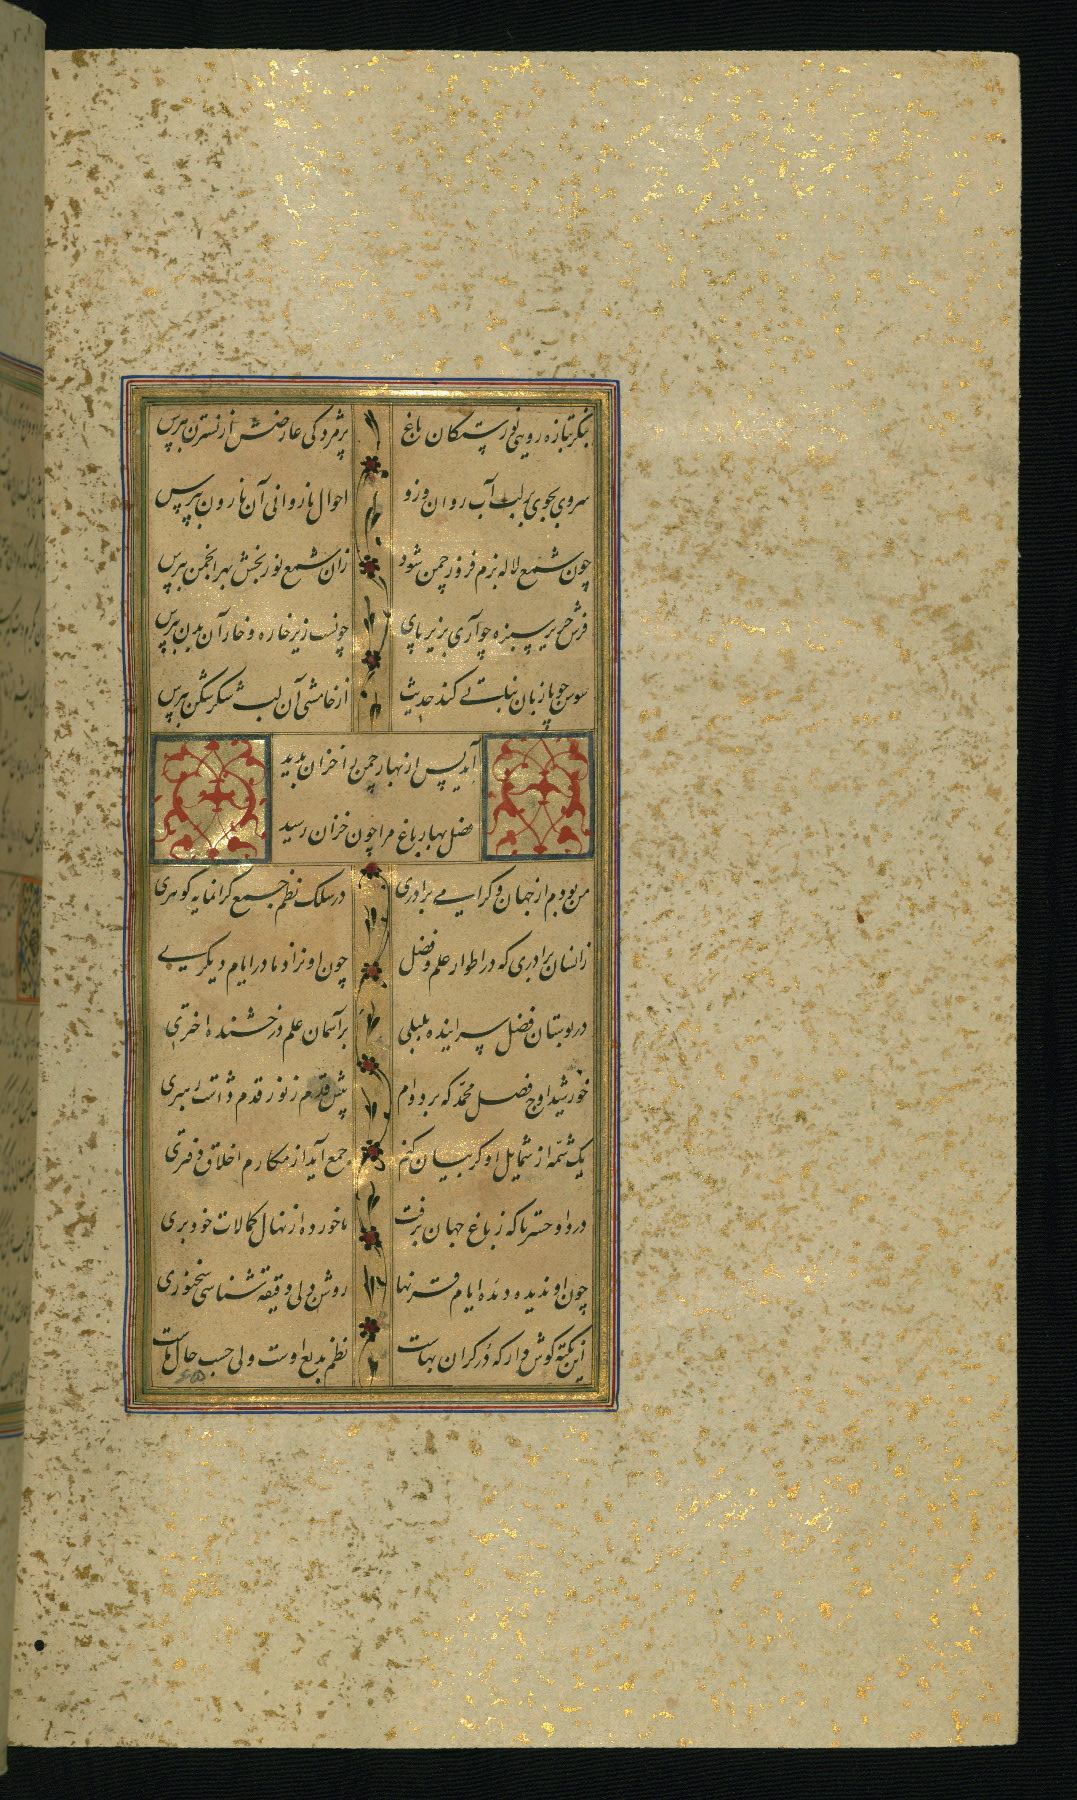 بنگر بتازه رویی نورستگان باغ پژمردگی عارضش از نسترن بپرس
سروی بجوی بر لب آب روان و زو احوال ناروانی آن نارون بپرس
چون شمع لاله بزم فروز چمن شود زان شمع نوربخش بهر انجمن بپرس
فرش حریر سبزه چو آری بزیر پای چونست زیر خاره و خار آن بدن بپرس
سوسن چو با زبان نباتی کند حدیث از خامشی آن لب شکرشکن بپرس
آمد پس از بهار چمن را خزان پدید
فصل بهار باغ مرا چون خزان رسید
من بودم از جهان و گرامی برادری در سلک نظم جمع گرانمایه گوهری
زانسان برادری که در اطوار علم و فضل چون او نزاد مادر ایام دیگری
در بوستان فضل سراینده بلبلی بر آسمان علم درخشنده اختری
خورشید اوج فضل محمد که بر دوام پیش قدم ز نور قدم داشت رهبری
یک شمه از شمایل او گر بیان کنم جمع آید از مکارم اخلاق دفتری
دردا و حسرتا که ز باغ جهان برفت ناخورده از نهال کمالات خود بری
چون او ندیده دیده ایام قرنها روشن دلی دقیقه شناسی سخنوری
این نکته گوش دار که در گران بهاست نظم بدیع اوست ولی حسب حال ماست